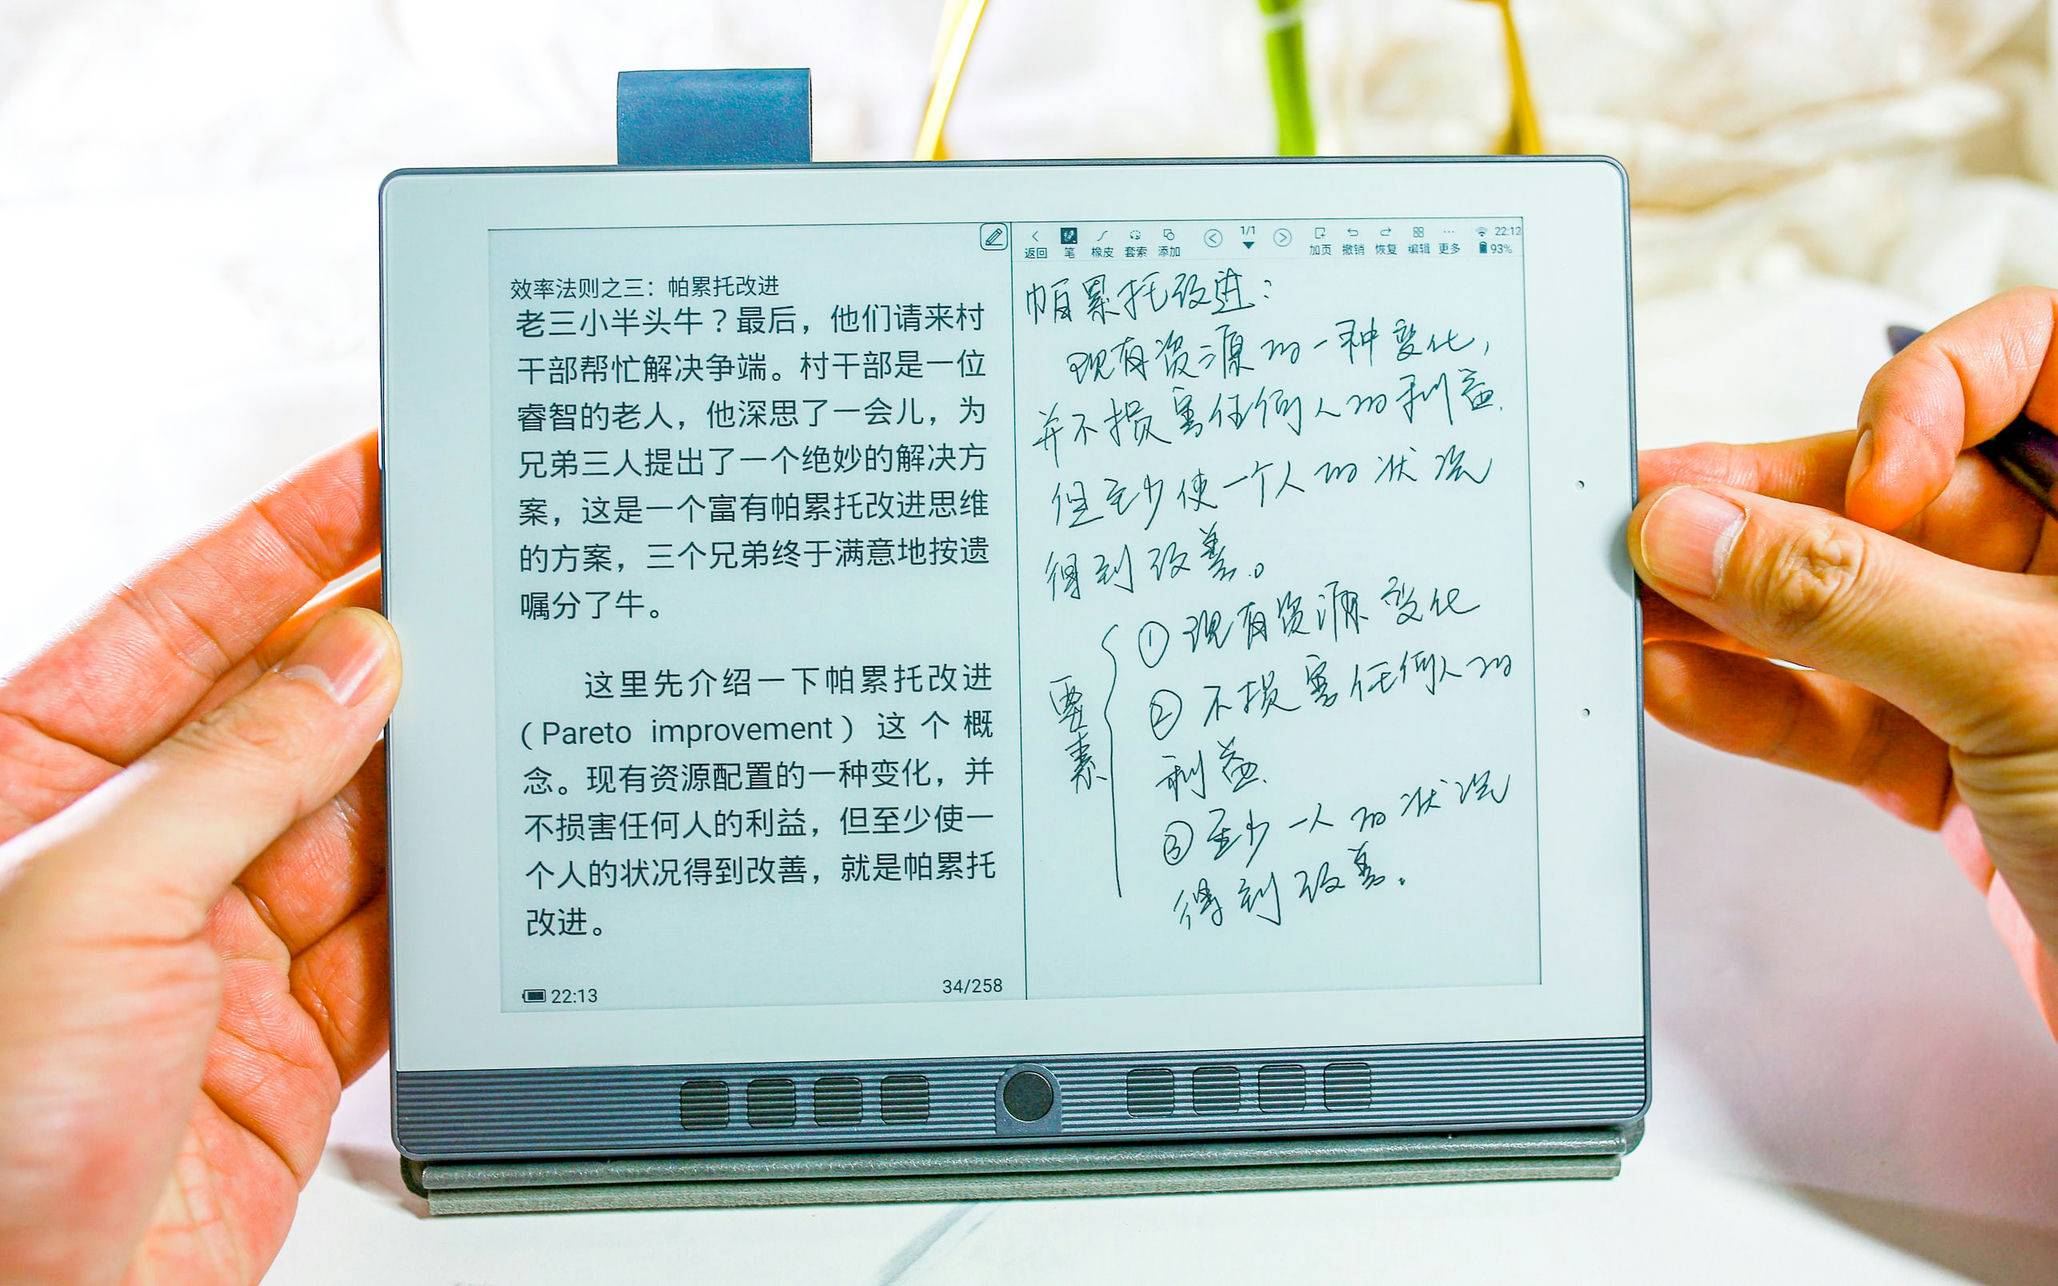 效率法则之三：帕累托改进
老三小半头牛？最后，他们请来村
干部帮忙解决争端。村干部是一位
睿智的老人，他深思了一会儿，为
兄弟三人提出了一个绝妙的解决方
案，这是一个富有帕累托改进思维
的方案，三个兄弟终于满意地按遗
嘱分了牛。
这里先介绍一下帕累托改进
（Pareto improvement）这个概
念。现有资源配置的一种变化，并
不损害任何人的利益，但至少使一
个人的状况得到改善，就是帕累托
改进。
22:13
34/258
返回 笔 橡皮 套索 添加 1/1 加页 撤销 恢复 编辑 更多 22:12
93%
帕累托改进：
现有资源的一种变化，
并不损害任何人的利益.
但至少使一个人的状况
得到改善。
要素
①现有资源变化
②不损害任何人的
利益.
③至少一人的状况
得到改善.